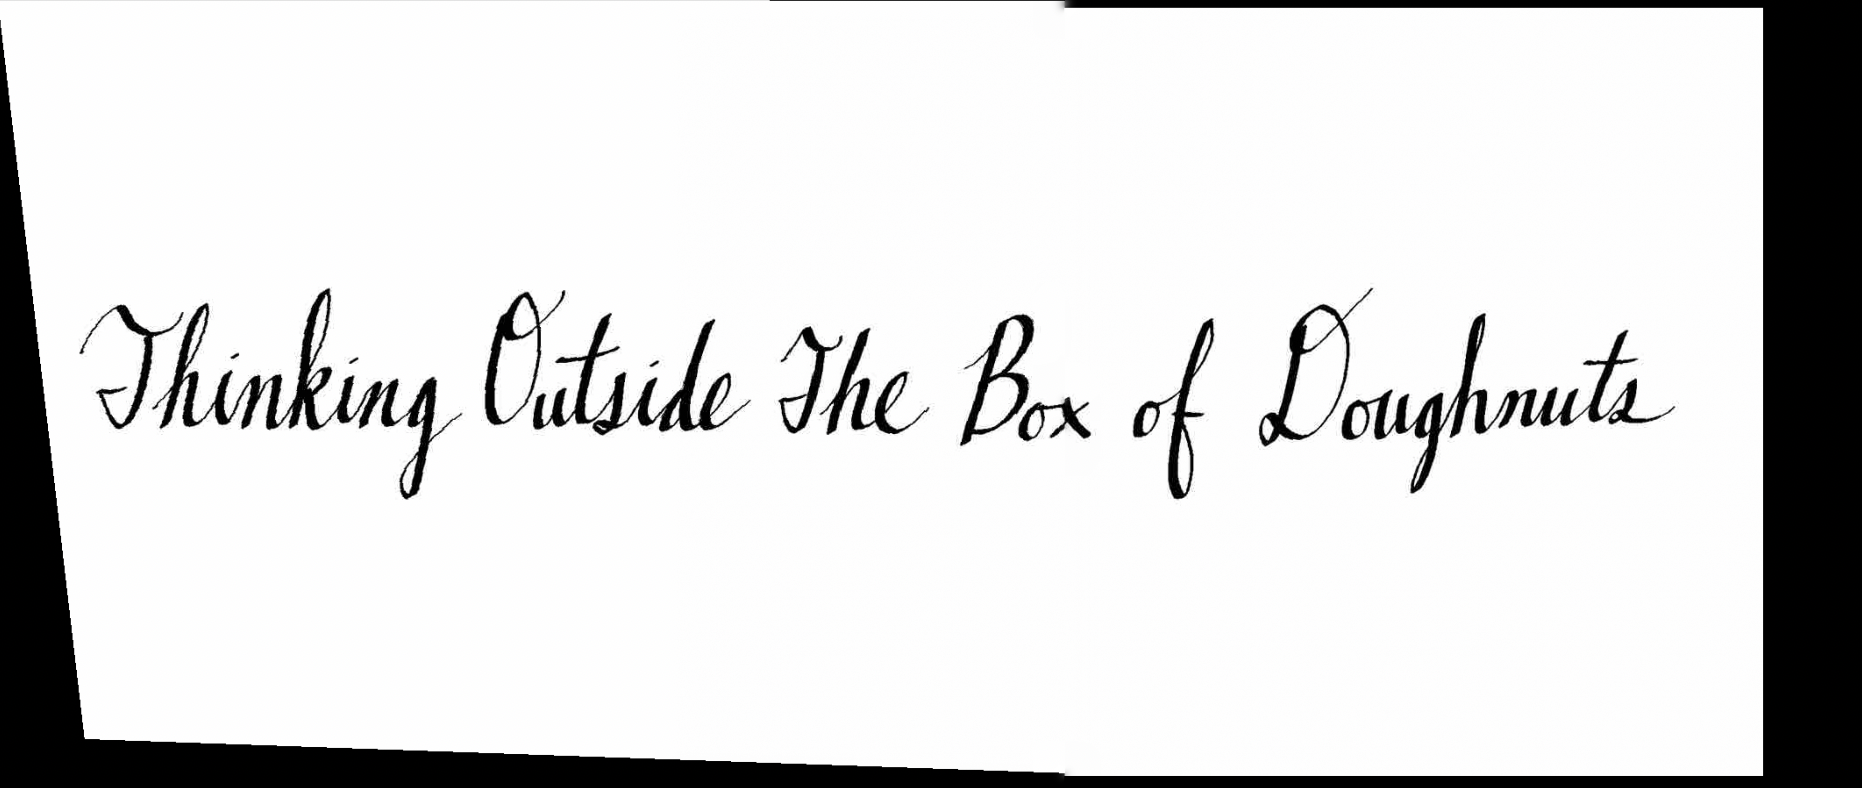 Thinking Outside The Box of Doughnuts